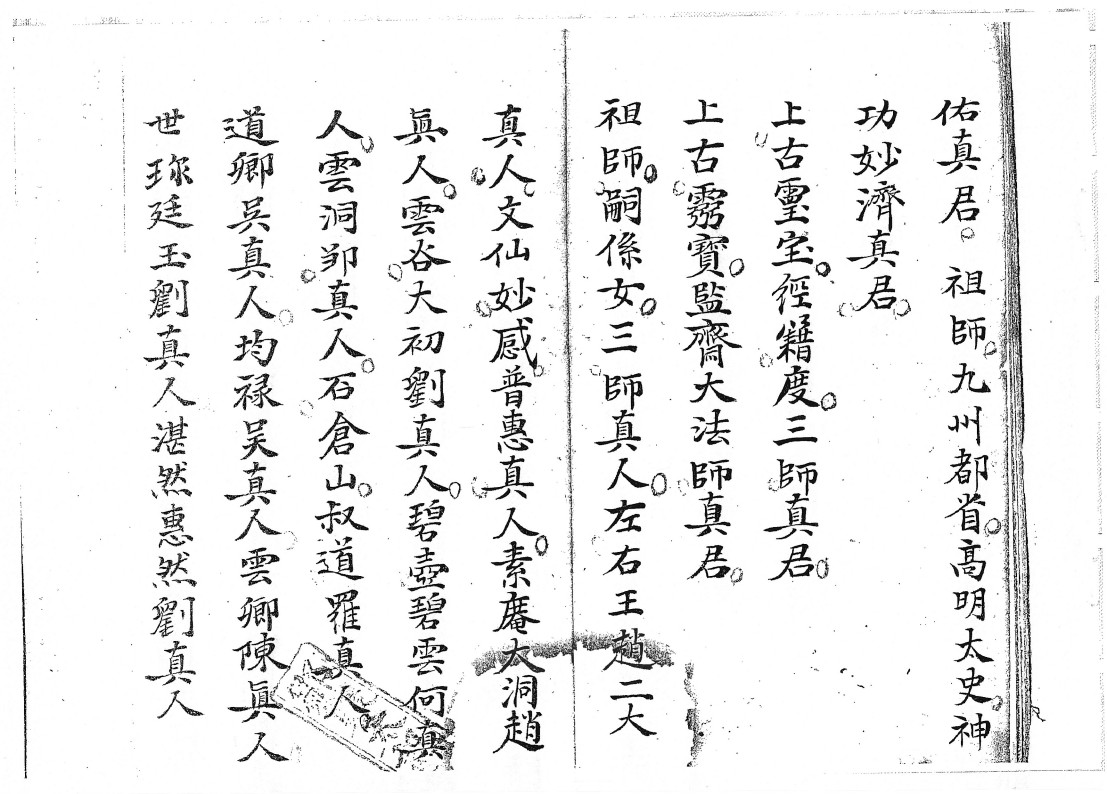 佑真君。祖師九州都省高明太史神
功妙濟真君
上古霊宝經籍度三師真君
上古靈寶監齋大法師真君
祖師嗣係女三師真人左右王趙二大
真人文仙妙感普惠真人素庵太洞趙
眞人雲谷大初劉真人碧壺碧雲何真
人雲洞邹真人石倉山叔道羅真人
道卿吳真人均禄吴真人雲卿陳眞人
世珎廷玉劉真人湛然惠然劉真人